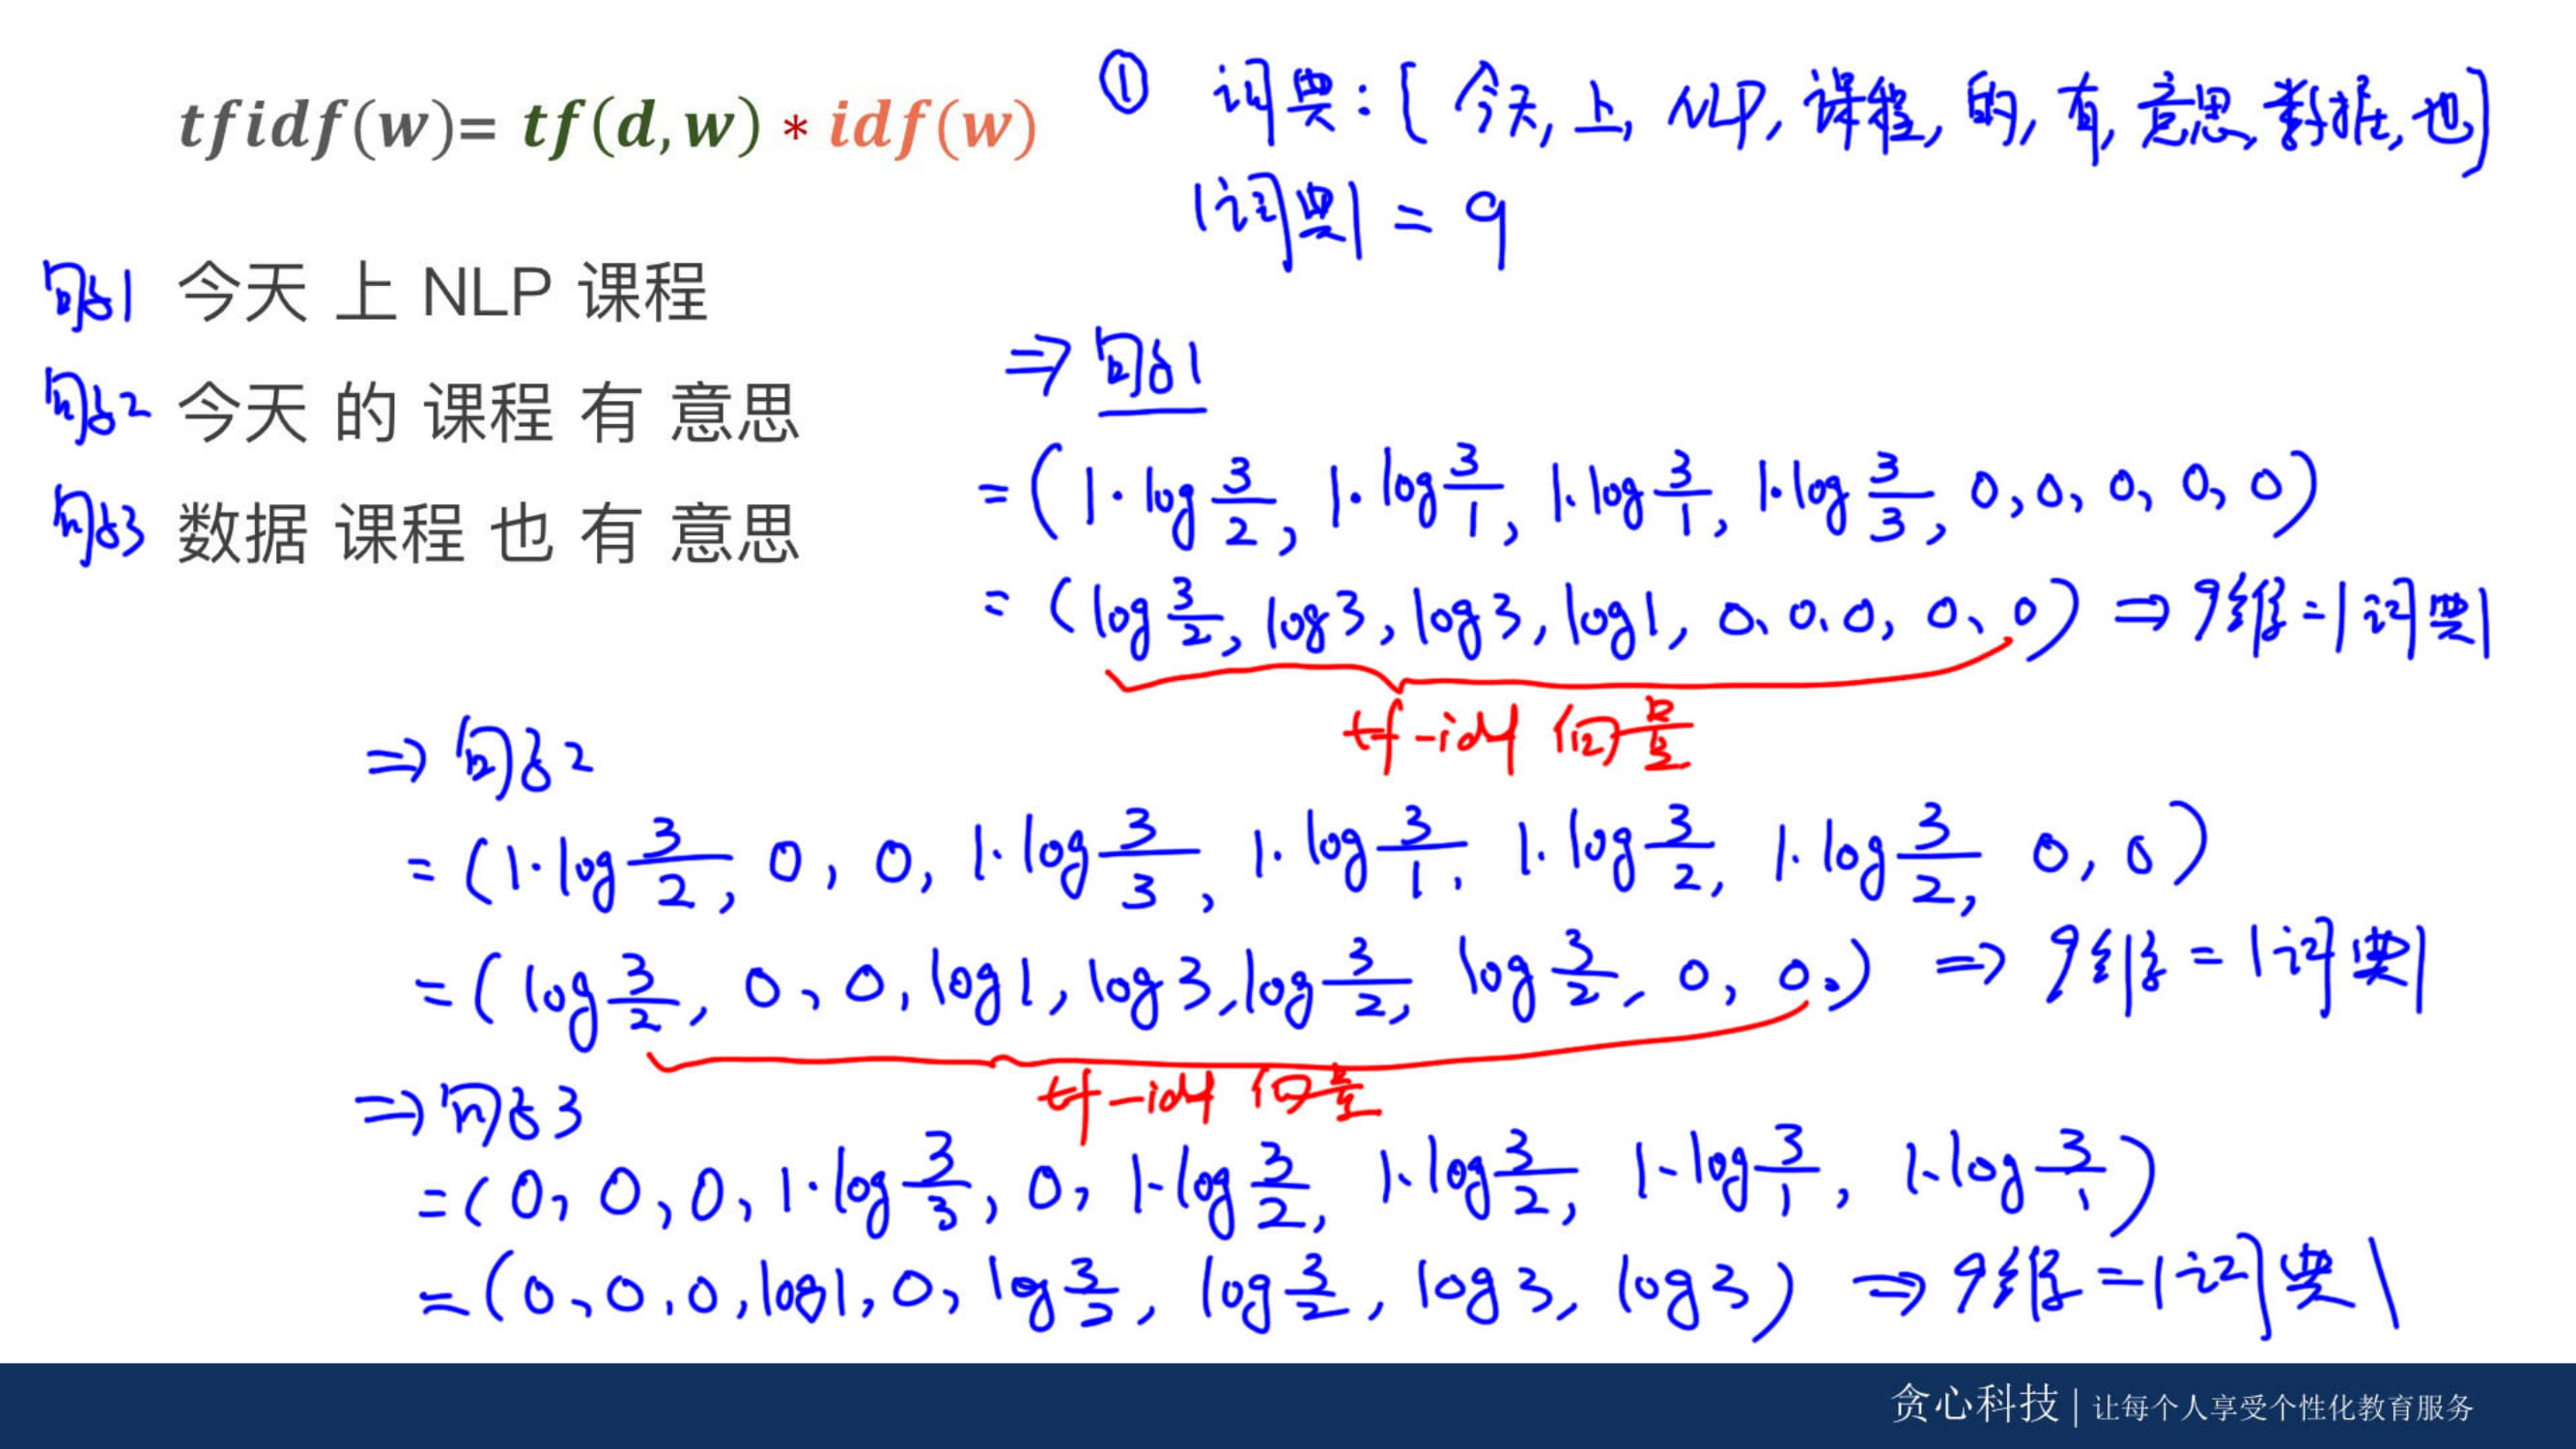 tfidf(w)= tf(d,w) * idf(w)
句子1 今天 上 NLP 课程
句子2 今天 的 课程 有 意思
句子3 数据 课程 也 有 意思
① 词典: [今天, 上, NLP, 课程, 的, 有, 意思, 数据, 也]
|词典| = 9
⇒ 句子1
= (1·log 3/2, 1·log 3/1, 1·log 3/1, 1·log 3/3, 0, 0, 0, 0, 0)
= (log 3/2, log3, log3, log1, 0, 0, 0, 0, 0) ⇒ 9维 = |词典|
tf-idf 向量
⇒ 句子2
= (1·log 3/2, 0, 0, 1·log 3/3, 1·log 3/1, 1·log 3/2, 1·log 3/2, 0, 0)
= (log 3/2, 0, 0, log1, log3, log 3/2, log 3/2, 0, 0) ⇒ 9维 = |词典|
tf-idf 向量
⇒ 句子3
= (0, 0, 0, 1·log 3/3, 0, 1·log 3/2, 1·log 3/2, 1·log 3/1, 1·log 3/1)
= (0, 0, 0, log1, 0, log 3/2, log 3/2, log3, log3) ⇒ 9维 = |词典|
贪心科技 | 让每个人享受个性化教育服务